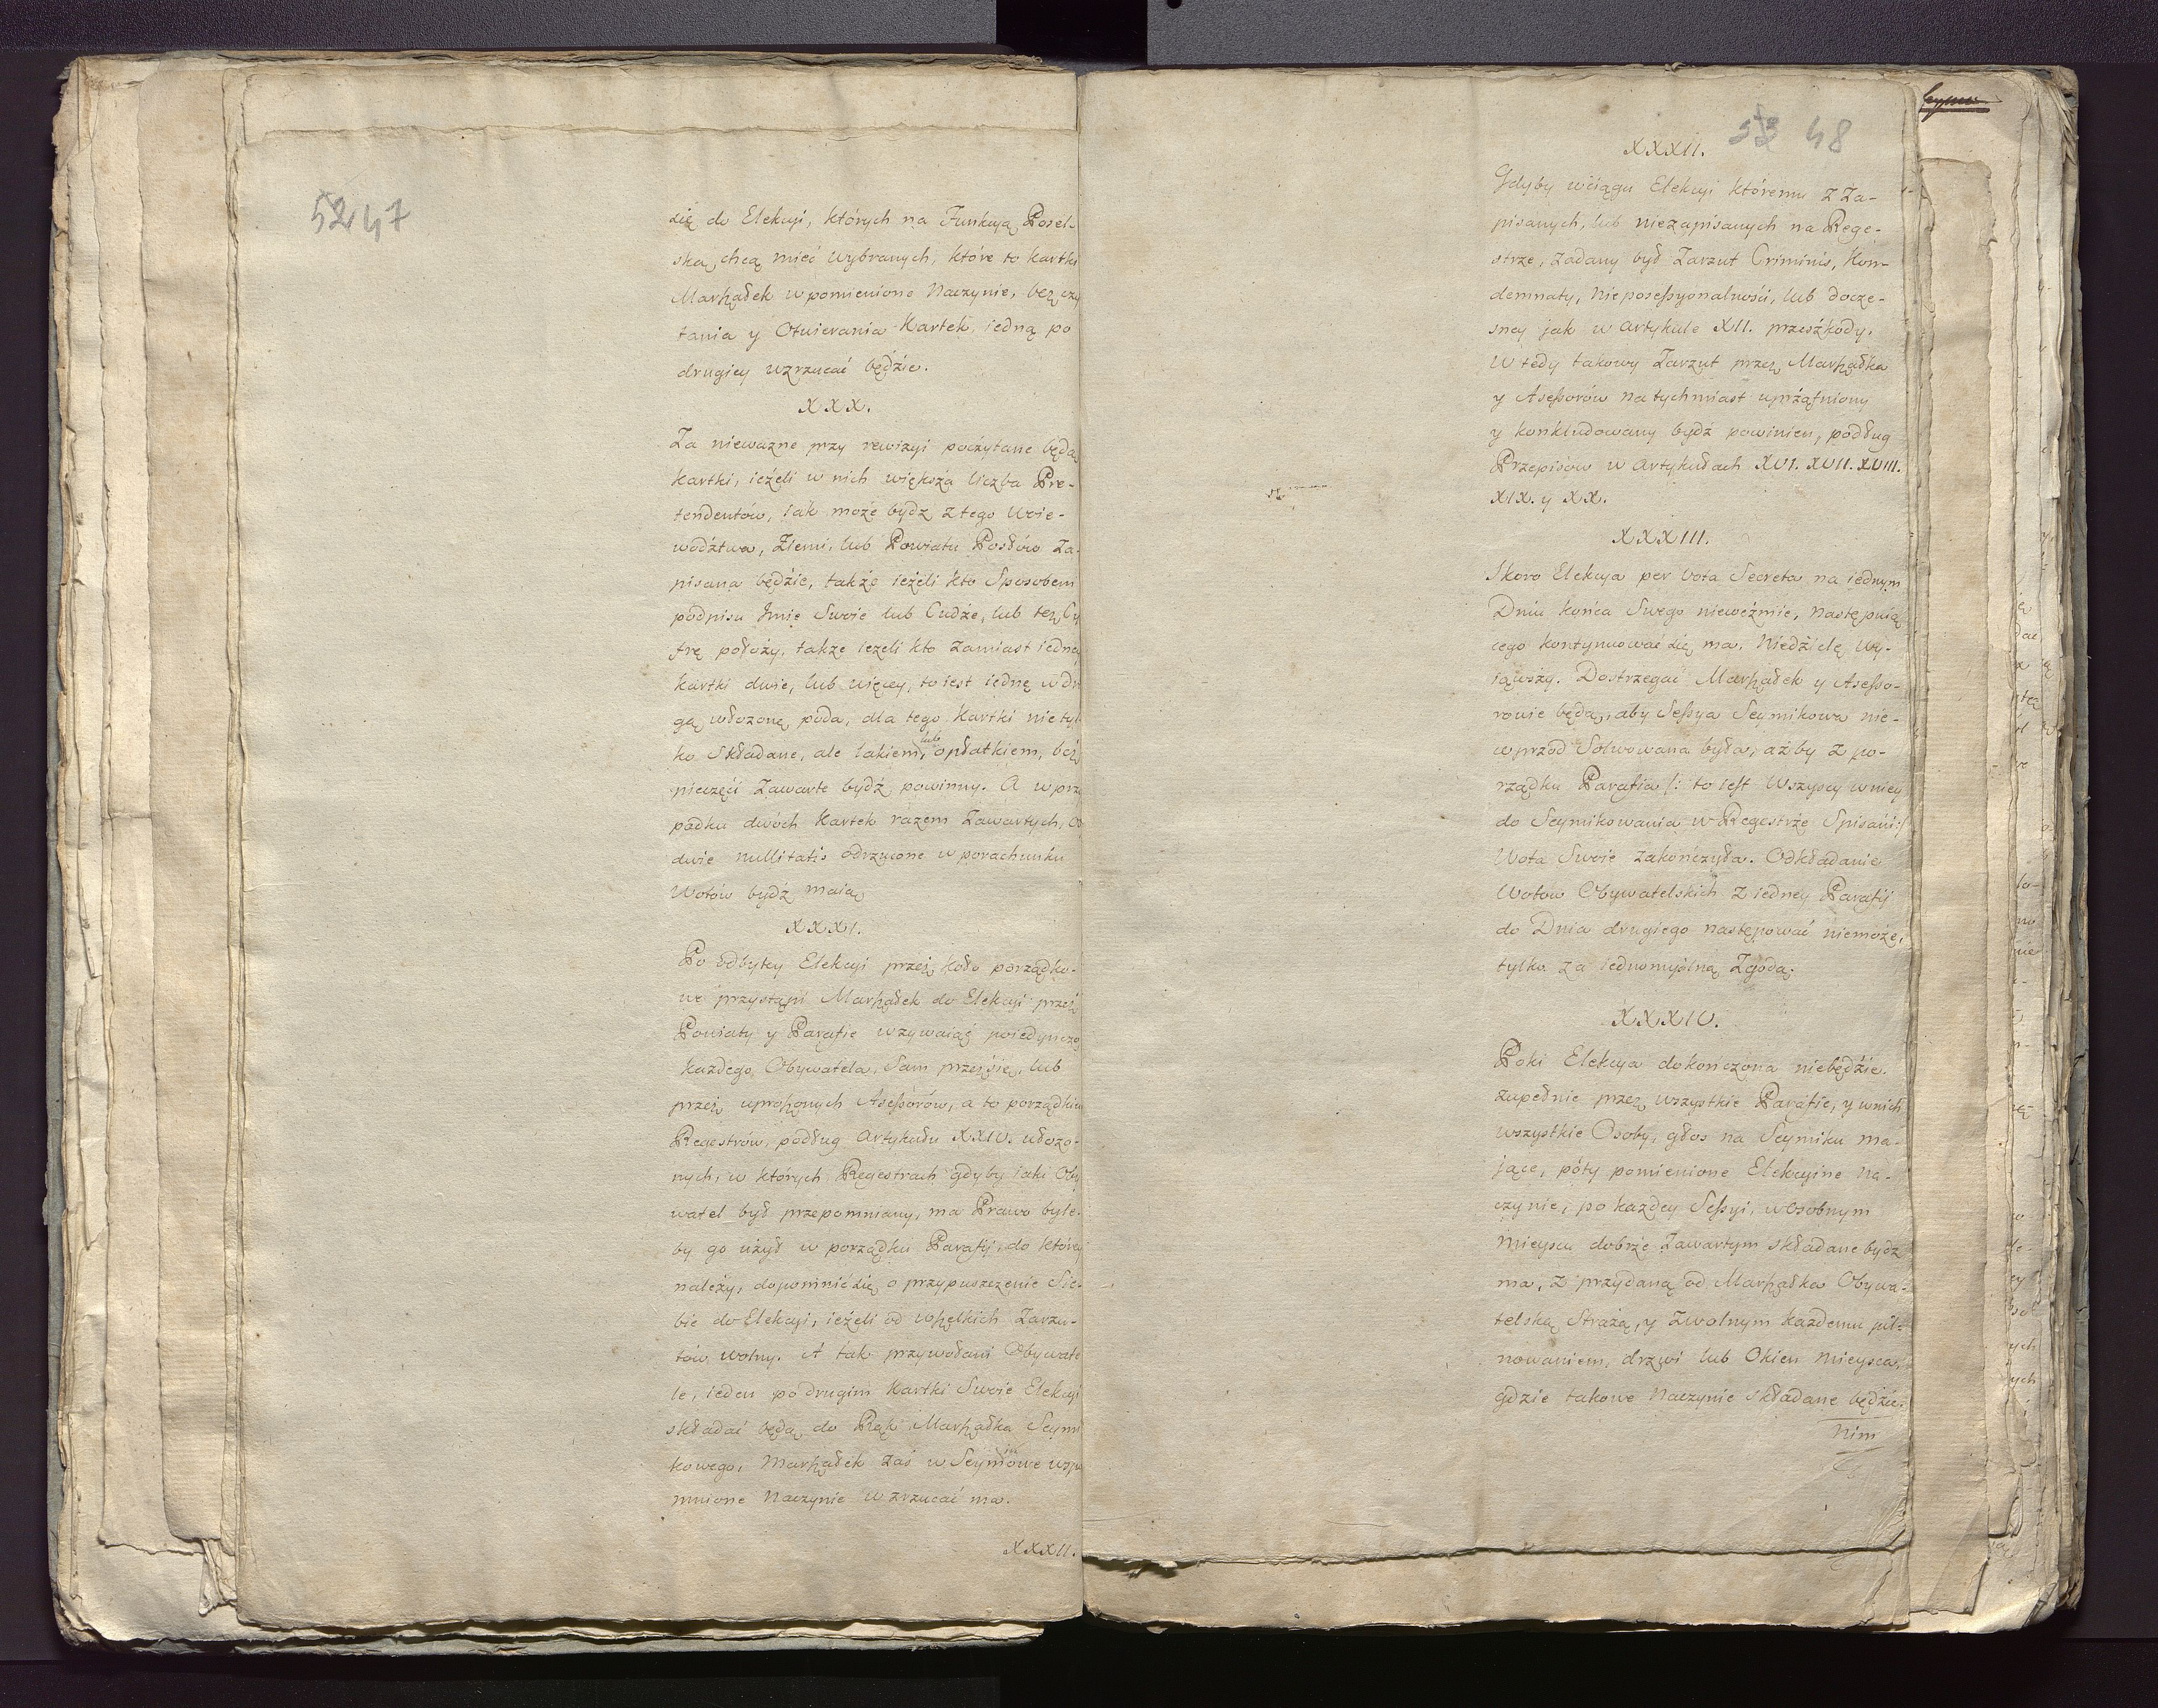 52 47
się do Elekcyi, których na Funkcyą Posel-
ską chcą mieć wybranych, które to kartki
Marszałek w pomienione Naczynie, bez czy
tania y Otwierania Kartek, iedną po
drugiey wzrzucać będzie.
XXX.
Za nieważne przy rewizyi poczytane będą
kartki, ieżeli w nich większa liczba Pre-
tendentów, iak może bydz z tego Woie-
wodztwa, Ziemi, lub Powiatu Posłów Za-
pisana będzie, także ieżeli kto Sposobem
podpisu Imię Swoie lub Cudze, lub też Cy
frę położy, także ieżeli kto zamiast iedney
kartki dwie, lub więcey, to iest iednę w dru
gą włożoną poda, dla tego Kartki nie tyl
ko Składane, ale lakiem, lub opłatkiem, bez
pieczęci Zawarte bydź powinny. A w przy
padku dwóch Kartek razem Zawartych, O
dwie nullitatis odrzucone w porachunku
Wotów bydź maią
XXXI.
Po odbytey Elekcyi przez koło porządko-
we przystąpi Marszałek do Elekcyi przez
Powiaty y Parafie wzywaiąc poiedynczo
każdego Obywatela, Sam przez się, lub
przez uproszonych Assessorów, a to porządkiem
Regestrów, podług Artykułu XXIV. ułożo-
nych, w których Regestrach gdyby iaki Oby
watel był przepomniany, ma Prawo byle-
by go użył w porządku Parafij, do którey
należy, dopomnić się o przypuszczenie Sie-
bie do Elekcyi, ieżeli od wszelkich Zarzu-
tów wolny. A tak przywołani Obywate
le, ieden po drugim Kartki Swoie Elekcyi
składać będą do Rąk Marszałka Seymi
kowego, Marszałek zaś w Seymowe wspo
mnione Naczynie wzrzucać ma.
XXXII.
53 48
XXXII.
Gdyby w ciągu Elekcyi któremu z Za-
pisanych, lub niezapisanych na Rege-
strze, zadany był Zarzut Criminis, Kon-
demnaty, Nieposessyonalności, lub docze-
sney jak w Artykule XII. przeszkody.
W tedy takowy Zarzut przez Marszałka
y Assessorów natychmiast uprzątniony
y konkludowany bydź powinien, podług
Przepisów w Artykułach XVI. XVII. XVIII.
XIX. y XX.
XXXIII.
Skoro Elekcya per Vota Secreta na iednym
Dniu końca Swego nieweźmie, Następuią
cego kontynuować się ma, Niedzielę wy-
iąwszy. Dostrzegać Marszałek y Assesso-
rowie będą, aby Sessya Seymikowa nie-
wprzod Solwowana była, aż by z po-
rządku Parafia /: to iest Wszyscy w niey
do Seymikowania w Regestrze Spisani :/
Wota Swoie zakończyła. Odkładanie
Wotow Obywatelskich z iedney Parafij
do Dnia drugiego następować niemoże,
tylko za iednomyślną Zgodą.
XXXIV.
Poki Elekcya dokończona niebędzie
zupełnie przez wszystkie Parafie, y w nich
wszystkie Osoby, głos na Seymiku ma-
jące, póty pomienione Elekcyine Na-
czynie, po każdey Sessyi, w Osobnym
Mieyscu dobrze Zawartym składane bydź
ma, z przydaną od Marszałka Obywa-
telską Strażą, y Zwolnym każdemu pil-
nowaniem, drzwi lub Okien Mieysca,
gdzie takowe Naczynie składane będzie.
Nim